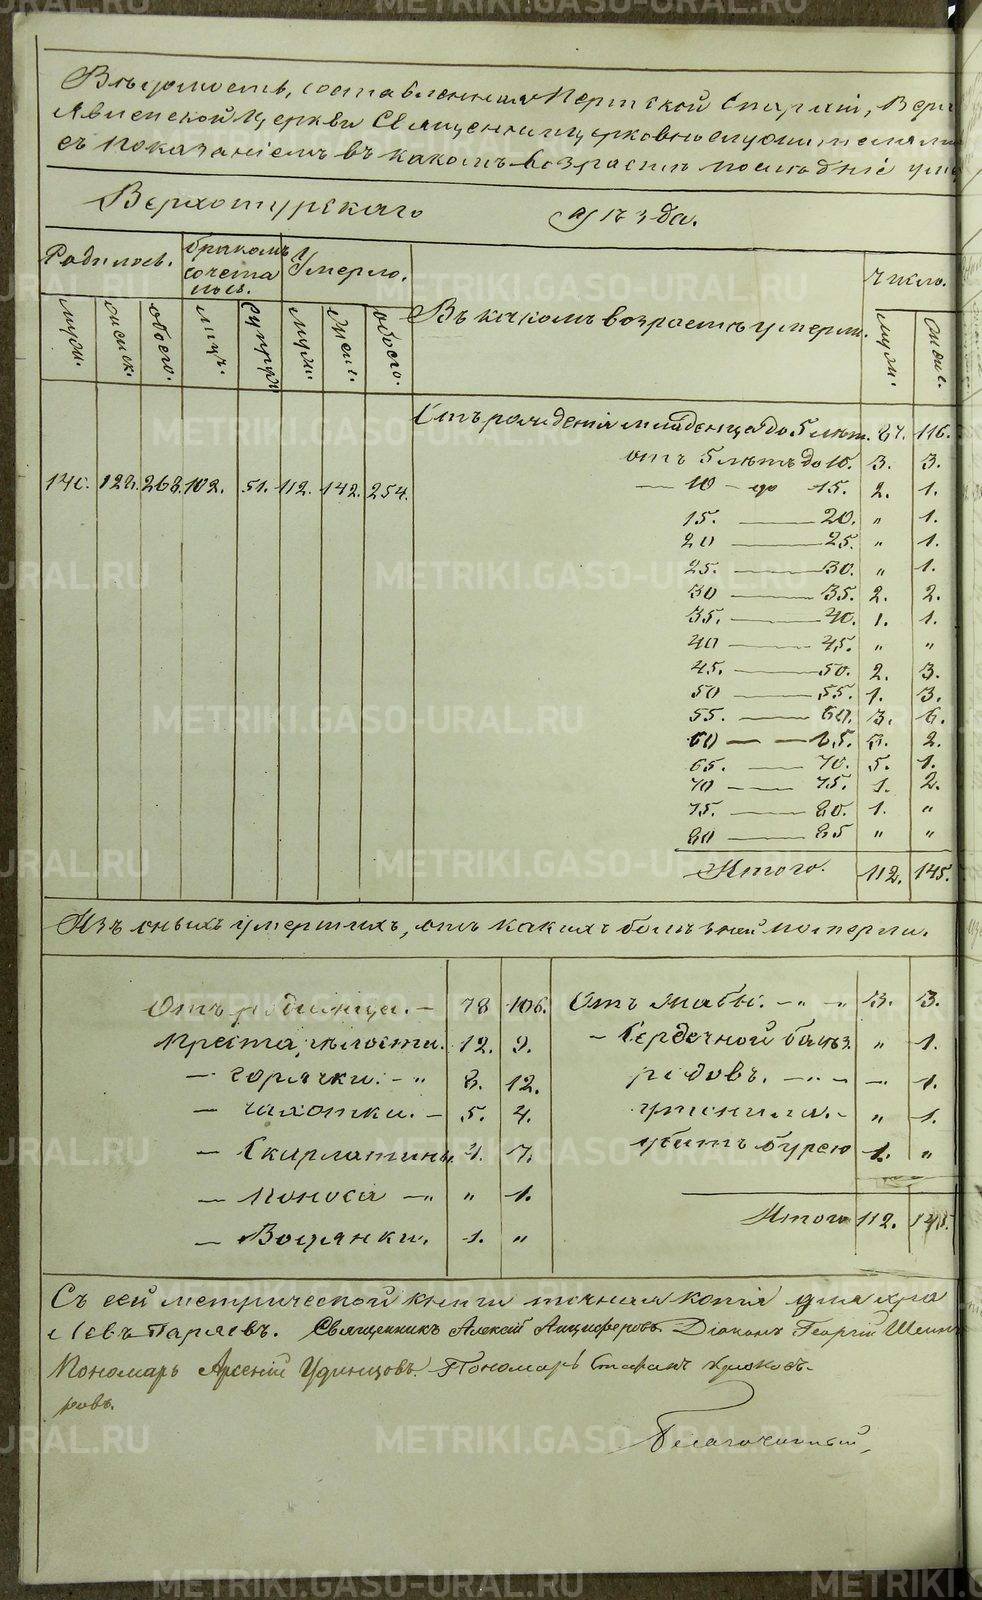 METRIKI.GASO-URAL.RU
Вѣдомость, составленная Пермской Епархіи, Верх
Явленской Церкви Священноицерковнослужителями
съ показаніемъ въ какомъ возрастѣ послѣдніе уме
Верхотурскаго уѣзда.
Родилось. бракомъ сочета лось. Умерло. Число.
муж. женск. обоего. лицъ. супруж муж. женс. обоего. Въ какомъ возрастѣ умерли. муж. женс.
Отъ рожденія младенца до 5 лѣт. 87. 116.
отъ 5 лѣтъ до 10. 3. 3.
140. 128. 268. 102. 51. 112. 142. 254. — 10 — до 15. 2. 1.
15. — 20. „ 1.
20 — 25. „ 1.
25. — 30. „ 1.
30 — 35. 2. 2.
35. — 40. 1. 1.
40 — 45. „ „
45. — 50. 2. 3.
50 — 55. 1. 3.
55. — 60. 3. 6.
60 — 65. 2.
65. — 70. 5. 1.
70 — 75. 1. 2.
75. — 80. 1. „
80 — 85 „ „
Итого. 112. 145.
Изъ оныхъ умершихъ, отъ какихъ болѣзней померли.
Отъ родимца. — 78 106. Отъ жабы. — „ — „ 3. 3.
Престарѣлости. 12. 9. — Сердечной болѣз. „ 1.
— горячки. — „ 8. 12. родовъ. — „ — — 1.
— чахотки. — 5. 4. утонула. — „ 1.
— Скарлатины. 4. 7. убитъ бурею 1. „
— Поноса — „ „ 1.
— Водянки. 1. „ Итого 112. 145.
Съ сей метрической книги точная копія для хра
Левъ Паряевъ. Священникъ Алексѣй Анциферовъ Діаконъ Георгій
Пономарь Арсеній Удинцовъ. Пономарь Стефанъ
ровъ.
Благочинный,